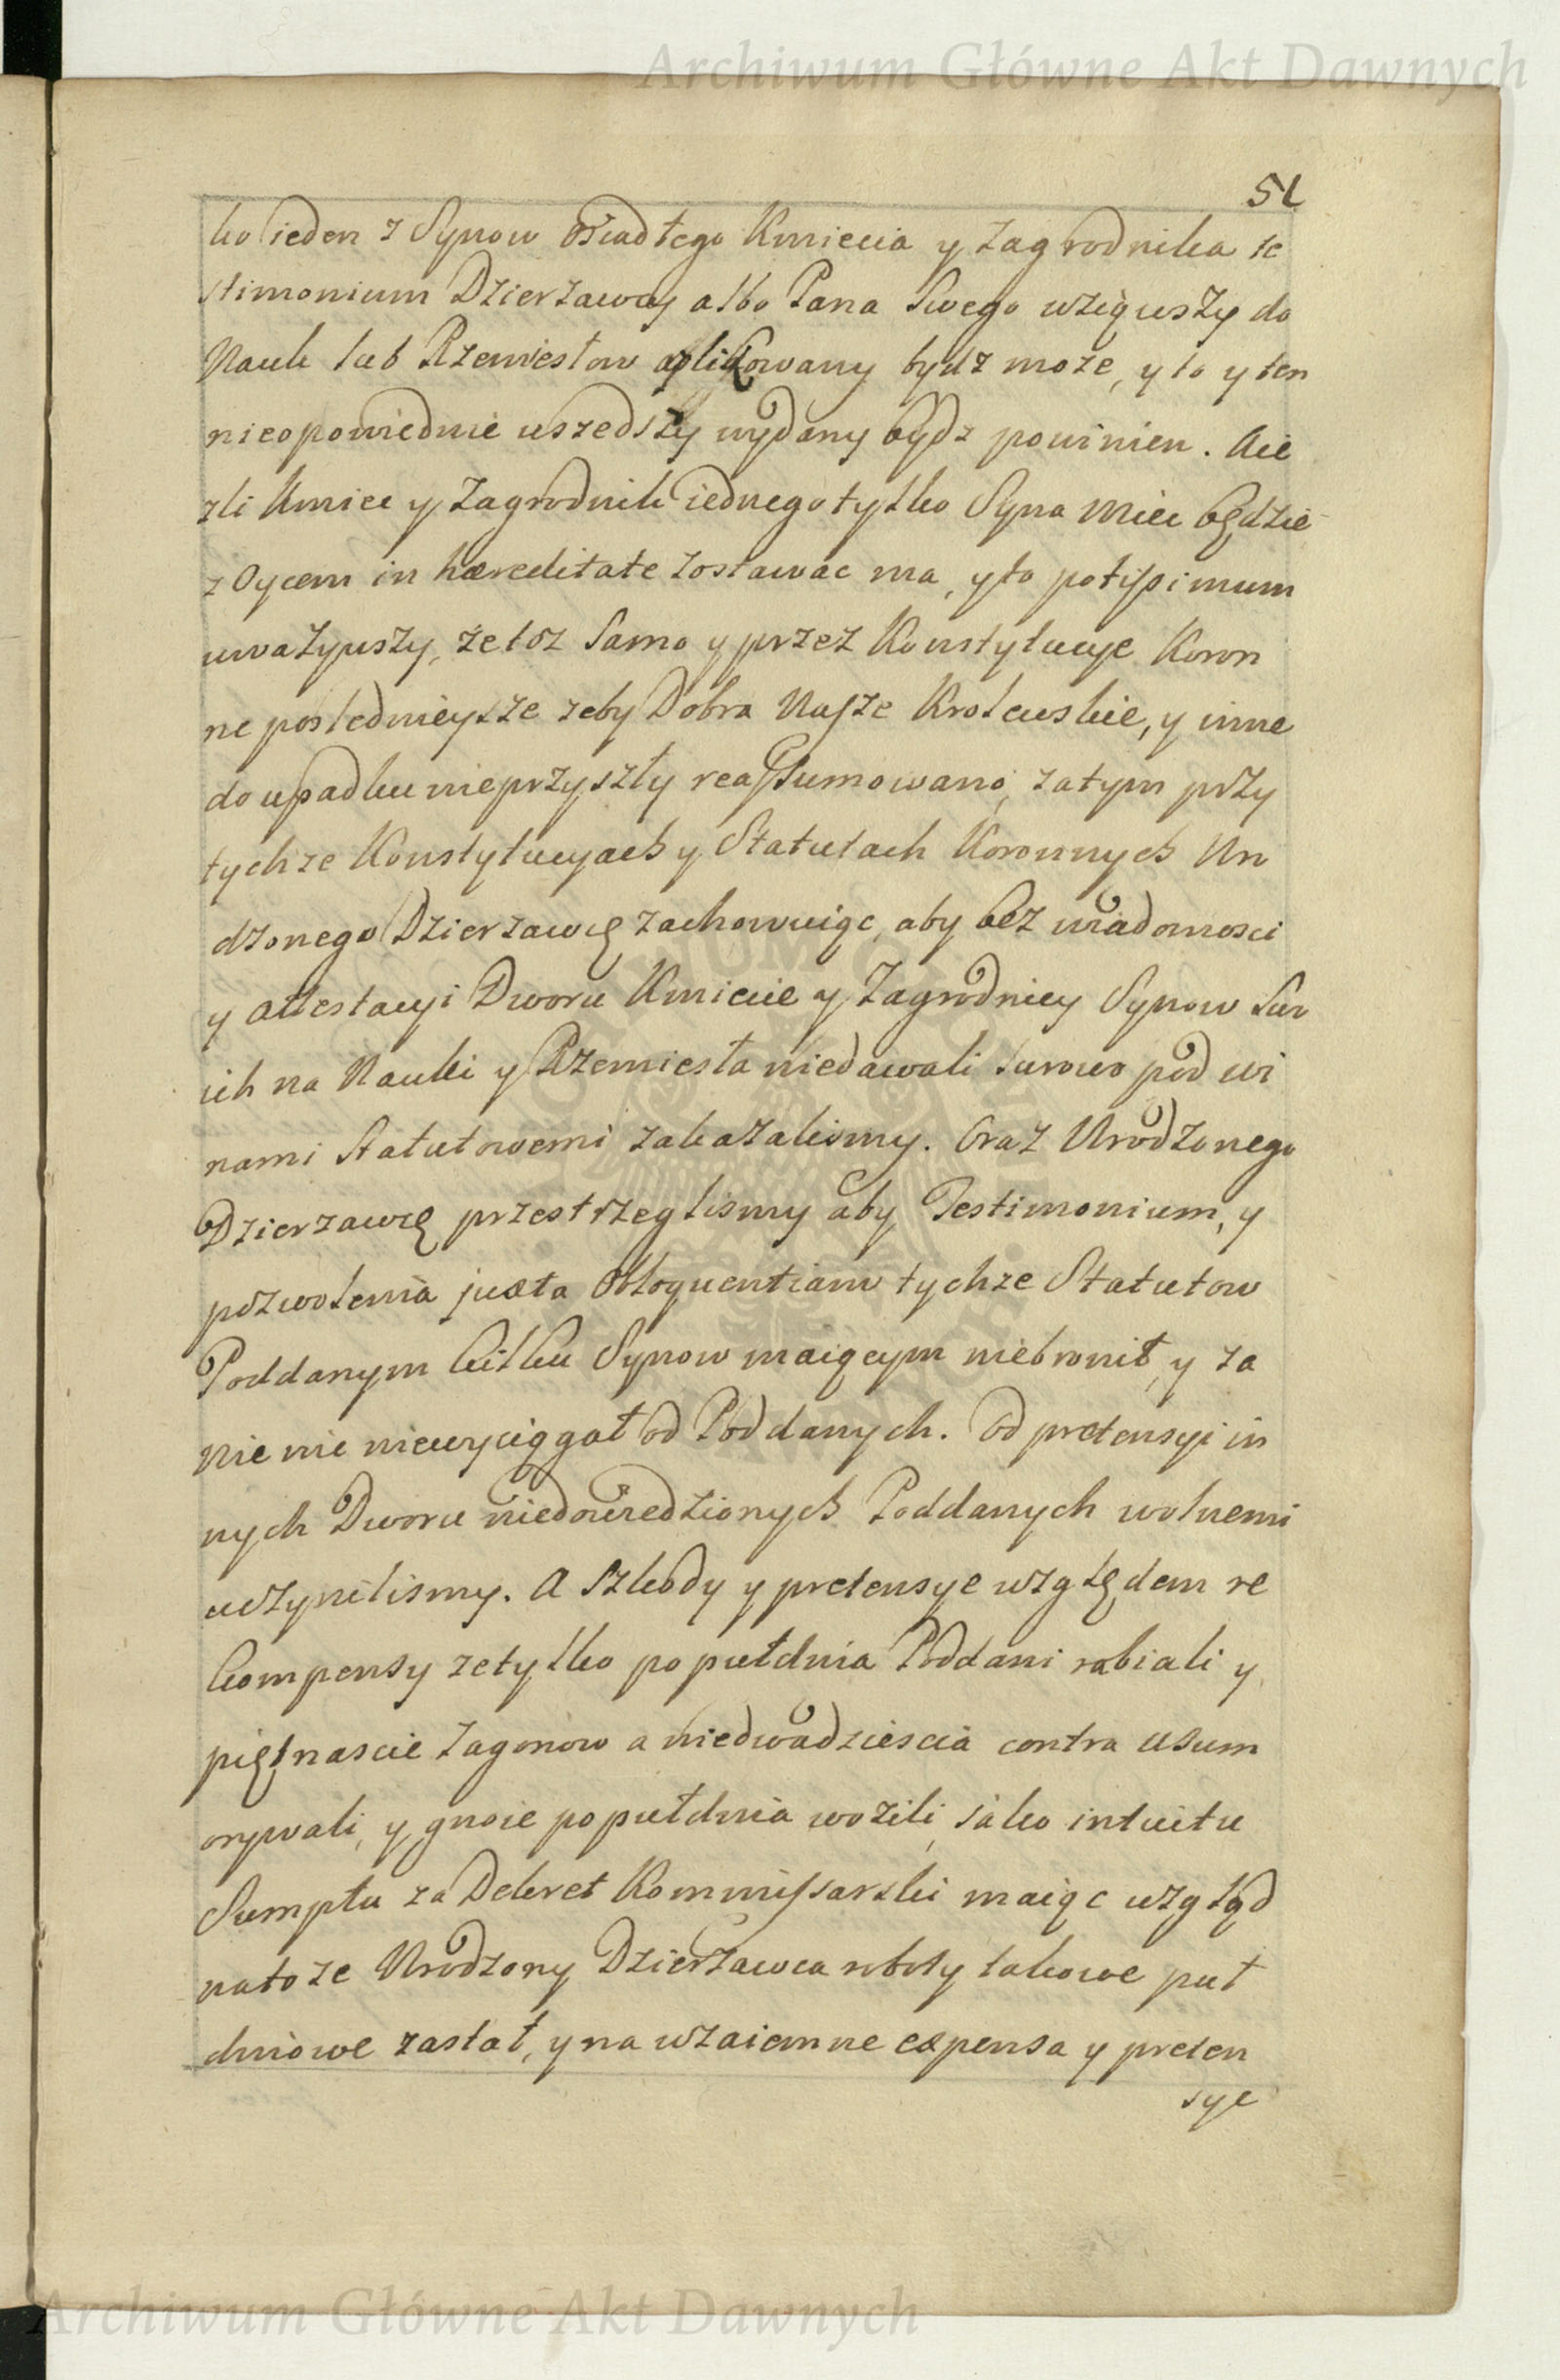 Archiwum Główne Akt Dawnych
51
ko ieden z Synow osiadłego Kmiecia y Zagrodnika te
stimonium Dzierzawcy albo Pana Swego wziąwszy do
Nauk lub Rzemiesłow aplikowany bydz może, y to y ten
nieopowiednie uszedszy wydany bydz powinien. A ie
zli Kmiec y Zagrodnik iednego tylko Syna miec będzie
z Oycem in hæreditate zostawac ma, y to potissimum
uważywszy, że toz Samo y przez Konstytucye Koron
ne poslednieysze zeby Dobra Nasze Krolewskie, y inne
do upadku nieprzyszły reassumowano, zatym przy
tychze Konstytucyach y Statutach Koronnych Uro
dzonego Dzierzawcę zachowuiąc, aby bez wiadomosci
y attestacyi Dworu Kmiecie y Zagrodnicy Synow Swo
ich na Nauki y Rzemiesła niedawali surowo pod wi
nami Statutowemi zakazalismy. Oraz Urodzonego
Dzierzawcę przestrzeglismy aby Testimonium, y
pozwolenia juxta Obloquentiam tychze Statutow
Poddanym kilku Synow maiącym niebronił, y za
nie nic niewyciągał od Poddanych. Od pretensyi in
nych Dworu niedowiedzionych Poddanych wolnemi
uczynilismy. A Szkody y pretensye względem re
kompensy ze tylko po pułdnia Poddani robiali y
piętnascie Zagonow a niedwadziescia contra usum
orywali, y gnoie po pułdnia wozili, iako intuitu
Sumptu za Dekret Kommissarski maiąc wzgląd
na to ze Urodzony Dzierzawca roboty takowe puł
dniowe zastał, y na wzaiemne expensa y preten
sye
Archiwum Główne Akt Dawnych